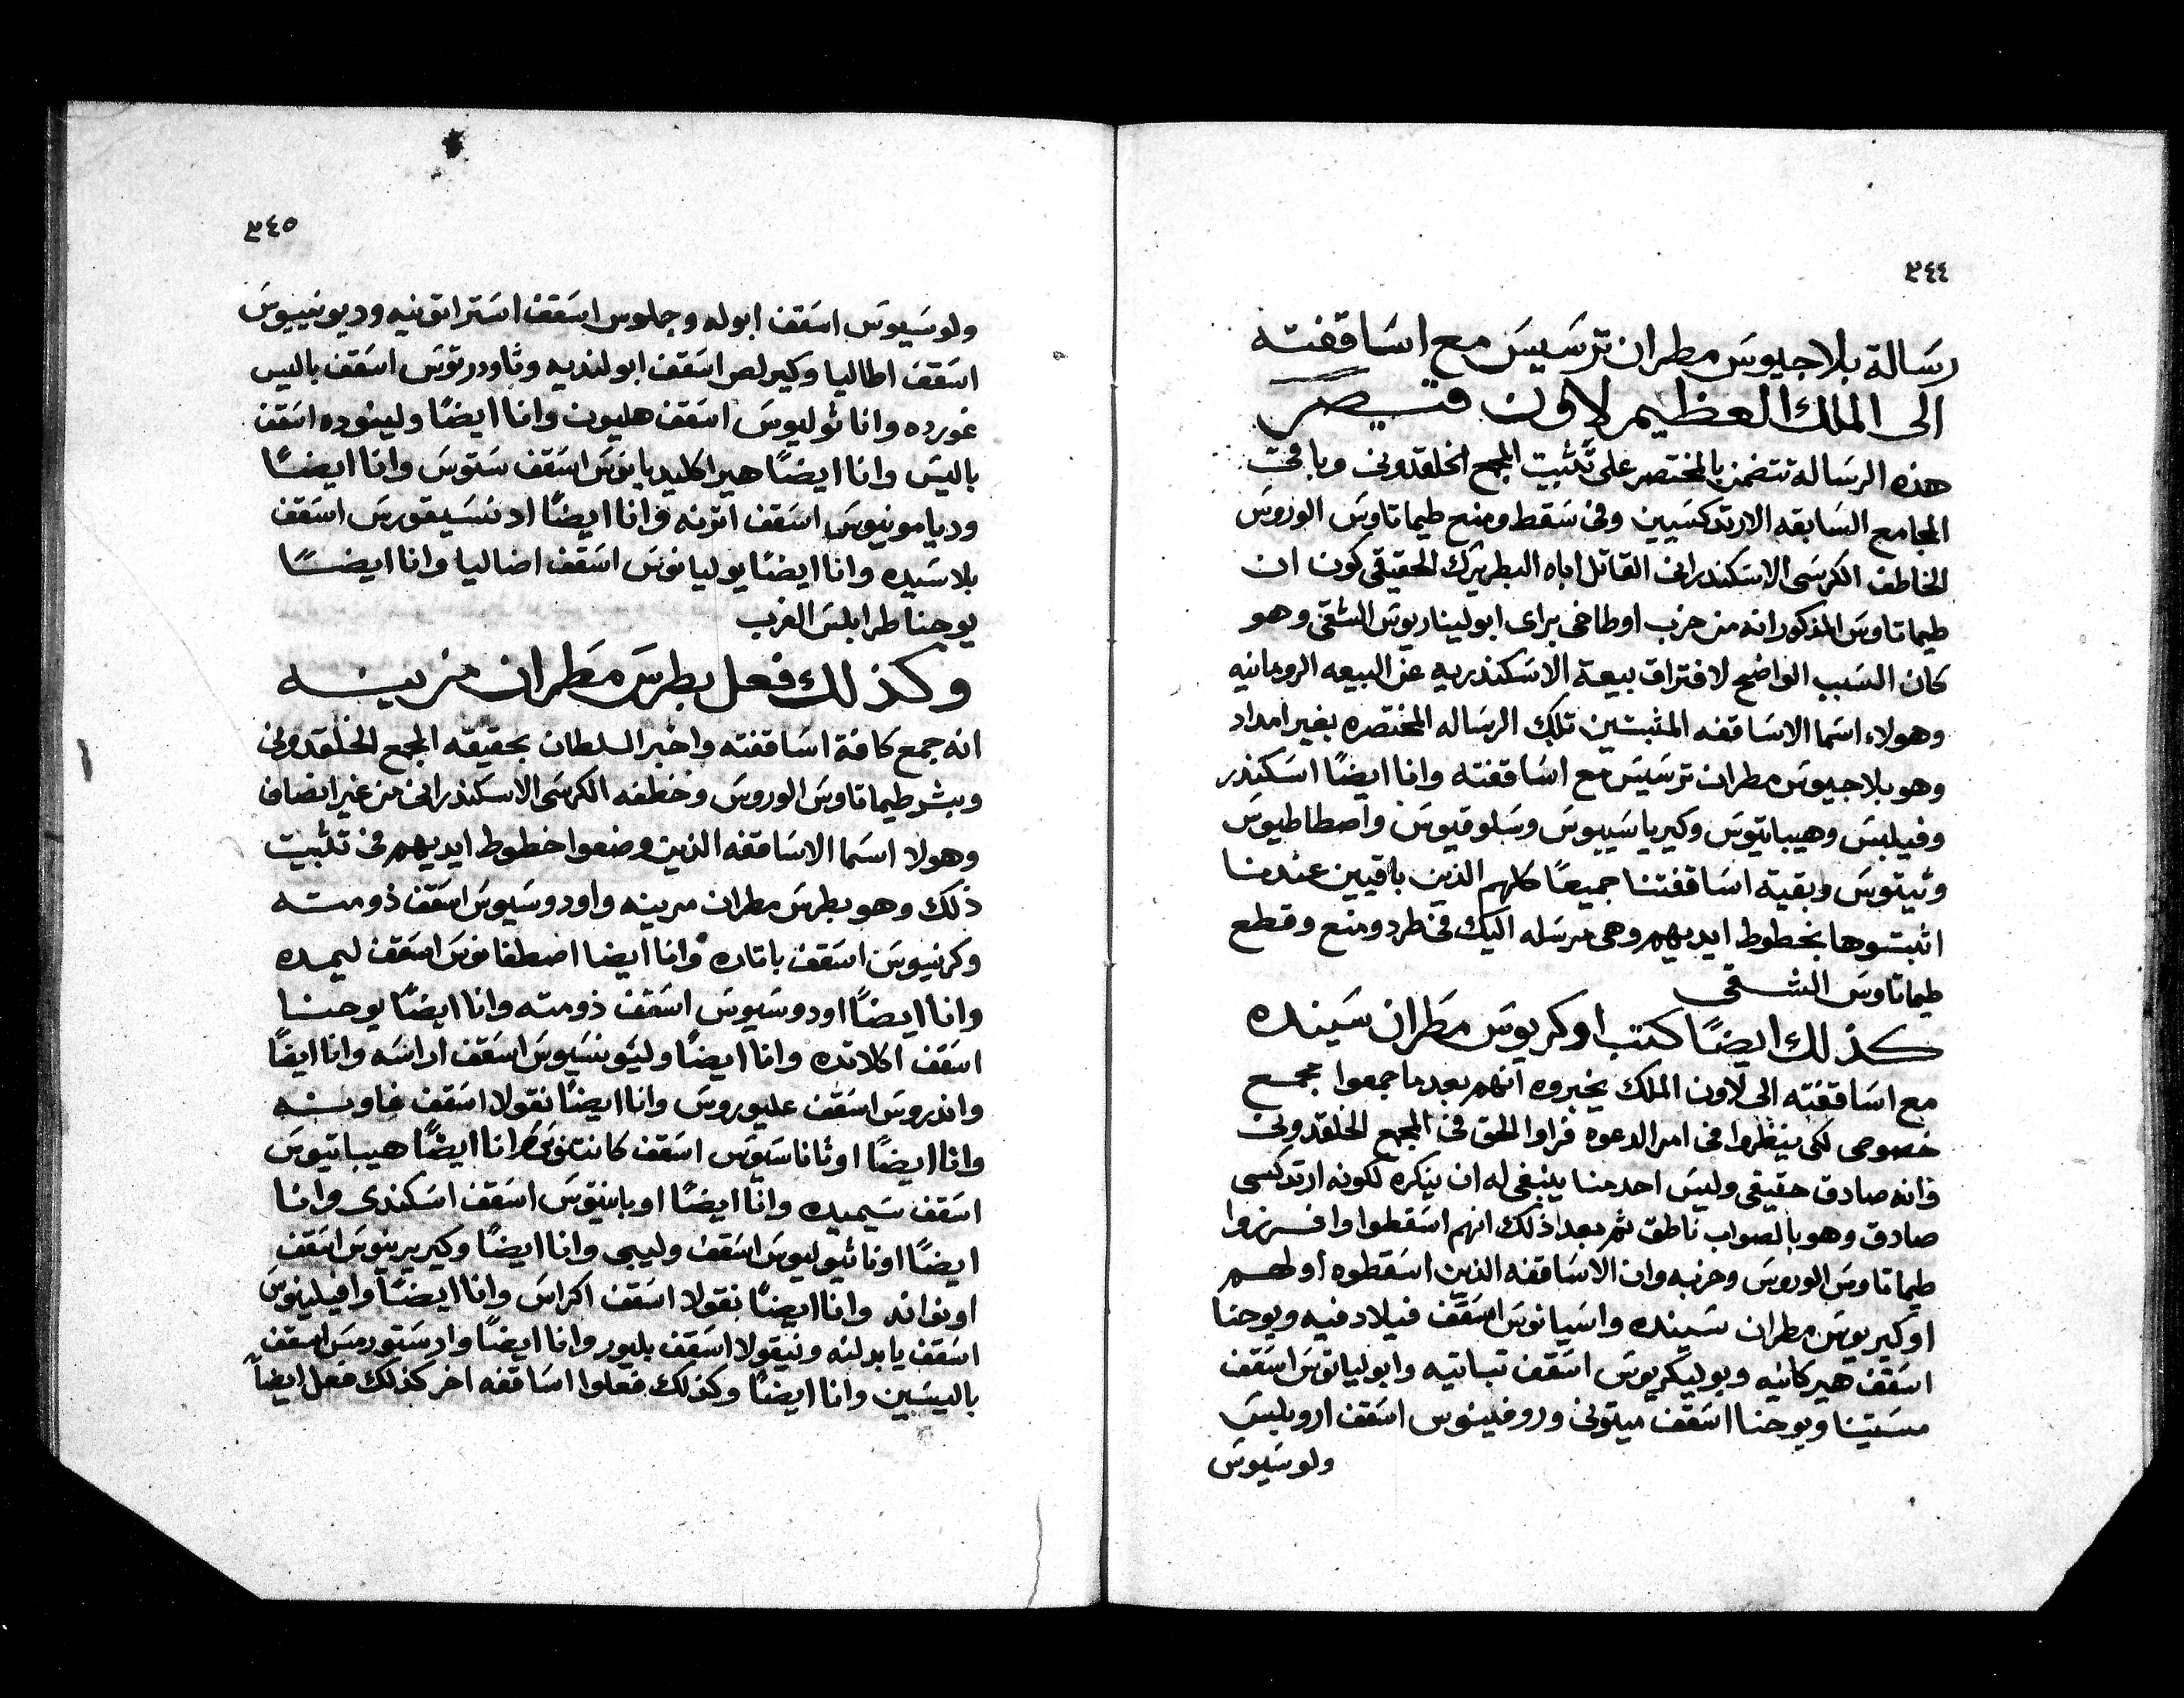 ٣٤٤
رسالة بلاجيوس مطران ترسيس مع اساقفته
الى الملك العظيم لاون قيصر
هذه الرساله تتضمن بالمختصر على تثبيت المجمع الخلقدونى وباقى
المجامع السابقه الارتدكسيين وفى سقط ومنع طيماتاوس الوروس
الخاطف الكرسى الاسكندرانى القاتل اباه البطريرك الحقيقى كون ان
طيماتاوس المذكور انه من حزب اوطاخى براى ابوليناريوس الشقى وهو
كان السبب الواضح لافتراق بيعة الاسكندريه عن البيعه الرومانيه
وهولاء اسما الاساقفه المثبتين تلك الرساله المختصره بغير امداد
وهو بلاجيوس مطران ترسيس مع اساقفته وانا ايضًا اسكندر
وفيلبس وهيباتيوس وكيرياسيوس وسلوقيوس واصطاطيوس
وتيتوس وبقية اساقفتنا جميعًا كلهم الذين باقيين عندنا
اثبتوها بخطوط ايديهم وهى مرسله اليك فى طرد ومنع وقطع
طيماتاوس الشقى
كذلك ايضًا كتب اوكريوس مطران سينده
مع اساقفته الى لاون الملك يخبروه انهم بعد ما جمعوا مجمع
خصوصى لكى ينظروا فى امر الدعوه فراوا الحق فى المجمع الخلقدونى
فانه صادق حقيقى وليس احد منا ينبغى له ان ينكره لكونه ارتدكسى
صادق وهو بالصواب ناطق ثم بعد اذلك انهم اسقطوا وافرزوا
طيماتاوس الوروس وحزبه وان الاساقفه الذين اسقطوه اولهم
اوكيريوس مطران سينده واسيانوس اسقف فيلادفيه ويوحنا
اسقف هيركانيه وبوليكريوس اسقف تباتيه وابوليانوس اسقف
مستينا ويوحنا اسقف ميتونى وروفينوس اسقف اروبليس
ولوسيوس
٣٤٥
ولوسيوس اسقف ابوله وجلوس اسقف استراتونيه وديونيسيوس
اسقف اطاليا وكيرلص اسقف ابولنديه وثاودرتوس اسقف باليس
غورده وانا ثوليوس اسقف هليون وانا ايضًا ولينوده اسقف
باليس وانا ايضًا هيراكليديانوس اسقف ستوس وانا ايضًا
وديامونيوس اسقف اترنه وانا ايضًا ادنسيقورس اسقف
بلاسيده وانا ايضًا يوليانوس اسقف اضاليا وانا ايضًا
يوحنا طرابلس الغرب
وكذلك فعل بطرس مطران مرينه
انه جمع كافة اساقفته واخبر السلطان بحقيقه المجمع الخلقدونى
وبشر طيماتاوس الوروس وخطفه الكرسى الاسكندرانى من غير انصاف
وهولا اسما الاساقفه الذين وضعوا خطوط ايديهم فى تثبيت
ذلك وهو بطرس مطران مرينه واودوسيوس اسقف ذومته
وكرنيوس اسقف باتاره وانا ايضا اصطفانوس اسقف ليمده
وانا ايضًا اودوسيوس اسقف ذومته وانا ايضًا يوحنا
اسقف اكلانده وانا ايضًا وليونسيوس اسقف اراسه وانا ايضًا
واندروس اسقف عليوروس وانا ايضًا نقولا اسقف خاوينه
وانا ايضًا اوثاناسوس اسقف وانا ايضًا هيباتيوس
اسقف سيميده وانا ايضًا اوباينتوس اسقف اسكندى وانا
ايضًا اوناثيوليوس اسقف وليبى وانا ايضًا وكيريرينوس اسقف
اونواند وانا ايضًا نقولا اسقف اكراس وانا ايضًا وافيلينوس
اسقف يابدلنه ونيقولا اسقف بليور وانا ايضًا وادستورمس اسقف
باليسيين وانا ايضًا وكذلك فعلوا اساقفه اخر كذلك فعل ايضاً